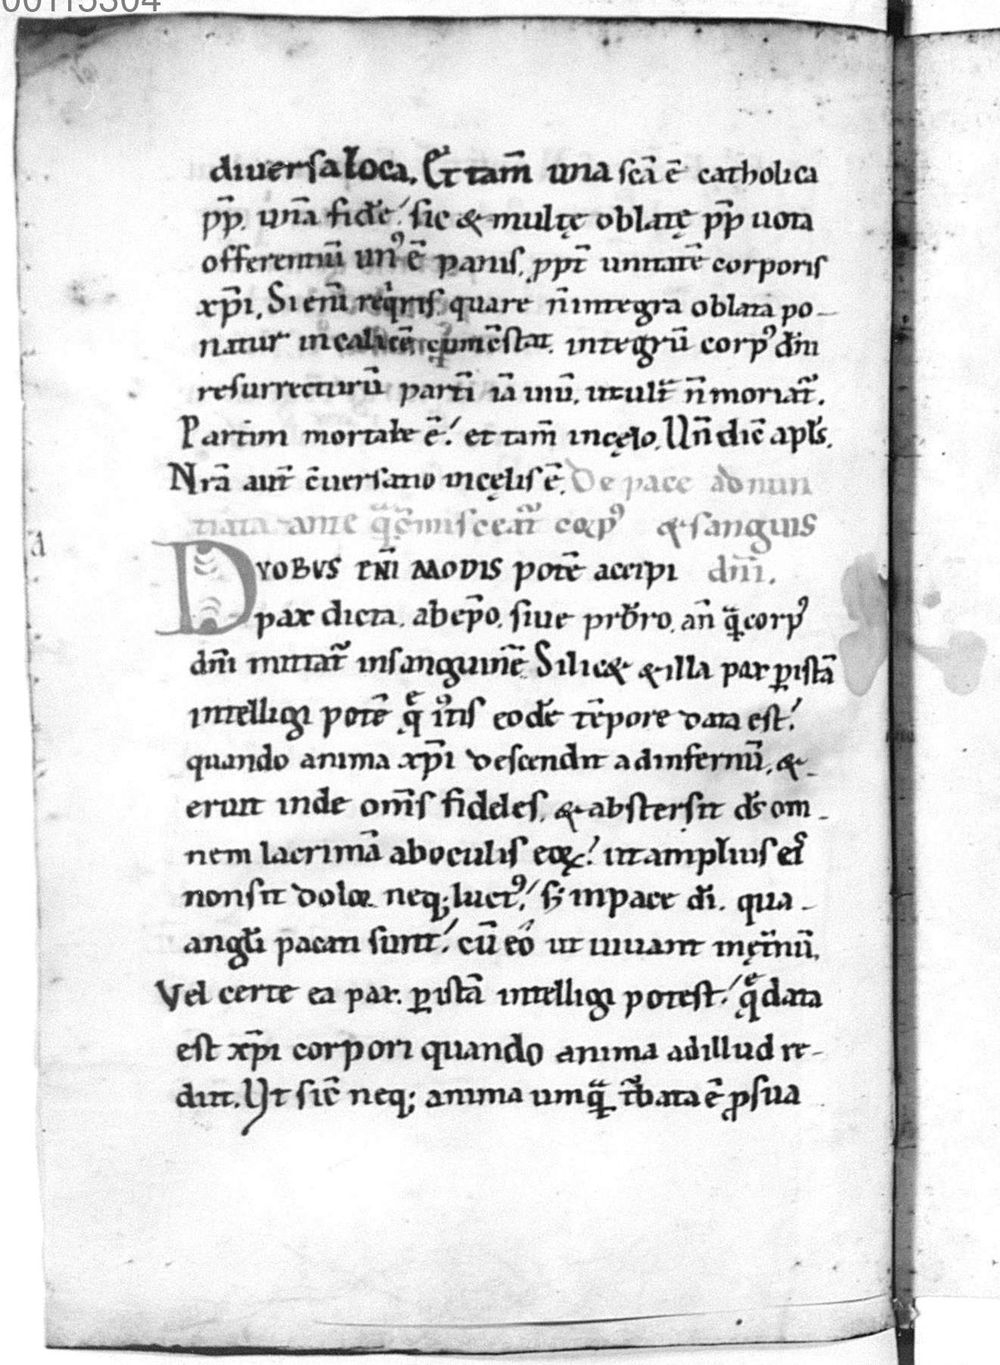 00115304
diuersa loca. Et tam̄ una sc̄a ē catholica
pp̄. unā fidē! sic & multę oblatę pp̄ uota
offerentiū un᾽ ē panis, ꝓpt̄ unitatē corporis
xp̄i. Si enī reqͥris. quare n̄ integra oblata po-
natur in calicē integrū corp᾽ dn̄i
resurrecturū partī iā uiū. n̄ moriat᾽.
Partim mortale ē! et tam̄ in cęlo. Un̄ dic̄ apl̄s.
Nrā aut̄ c̄uersatio in cęlis ē. De pace adnun
tiata ante qͣ c̄misceat᾽ corp᾽ & sanguis
Dyobus eni modis potē accipi dn̄i.
pax dicta. ab ep̄o. siue pr̄b̄ro. an̄ qͣ corp᾽
dn̄i mittat᾽ in sanguinē. Silic& & illa pax ꝑ istā
intelligi potē quę iusͭis eodē tēpore data est!
quando anima xp̄i descendit ad infernū, &
erunt inde om̄s fideles, & abstersit ds̄ om-
nem lacrimā ab oculis eoꝝ! ut amplius eis
non sit dolor neq; luct᾽! s; in pace dī. qua-
angl̄i pacati sunt! cū eo ut uiuant in ęt̄nū.
Vel certe ea pax. ꝑ istā intelligi potest! quę data
est xp̄i corpori quando anima ad illud re-
diit. Ut sic̄ neq; anima umqͣ t᾽bata ē ꝓ sua